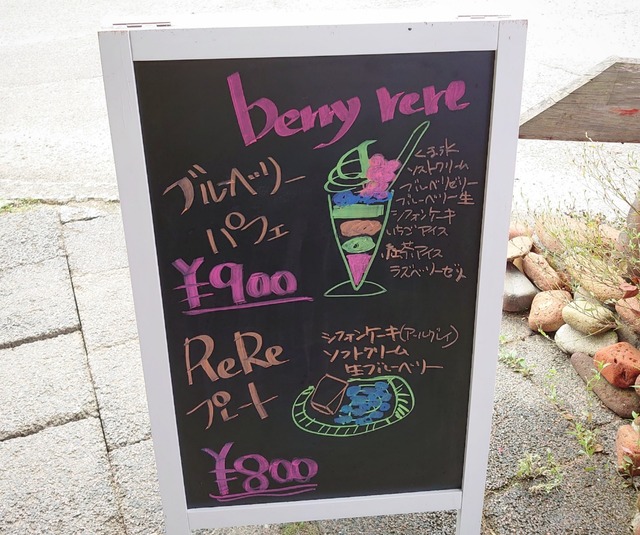 berry rere
ブルーベリー
パフェ
¥900
くま氷
ソフトクリーム
ブルーベリゼリー
ブルーベリー生
シフォンケーキ
いちごアイス
紅茶アイス
ラズベリーゼリー
ReRe
プレート
¥800
シフォンケーキ(アールグレイ)
ソフトクリーム
生ブルーベリー